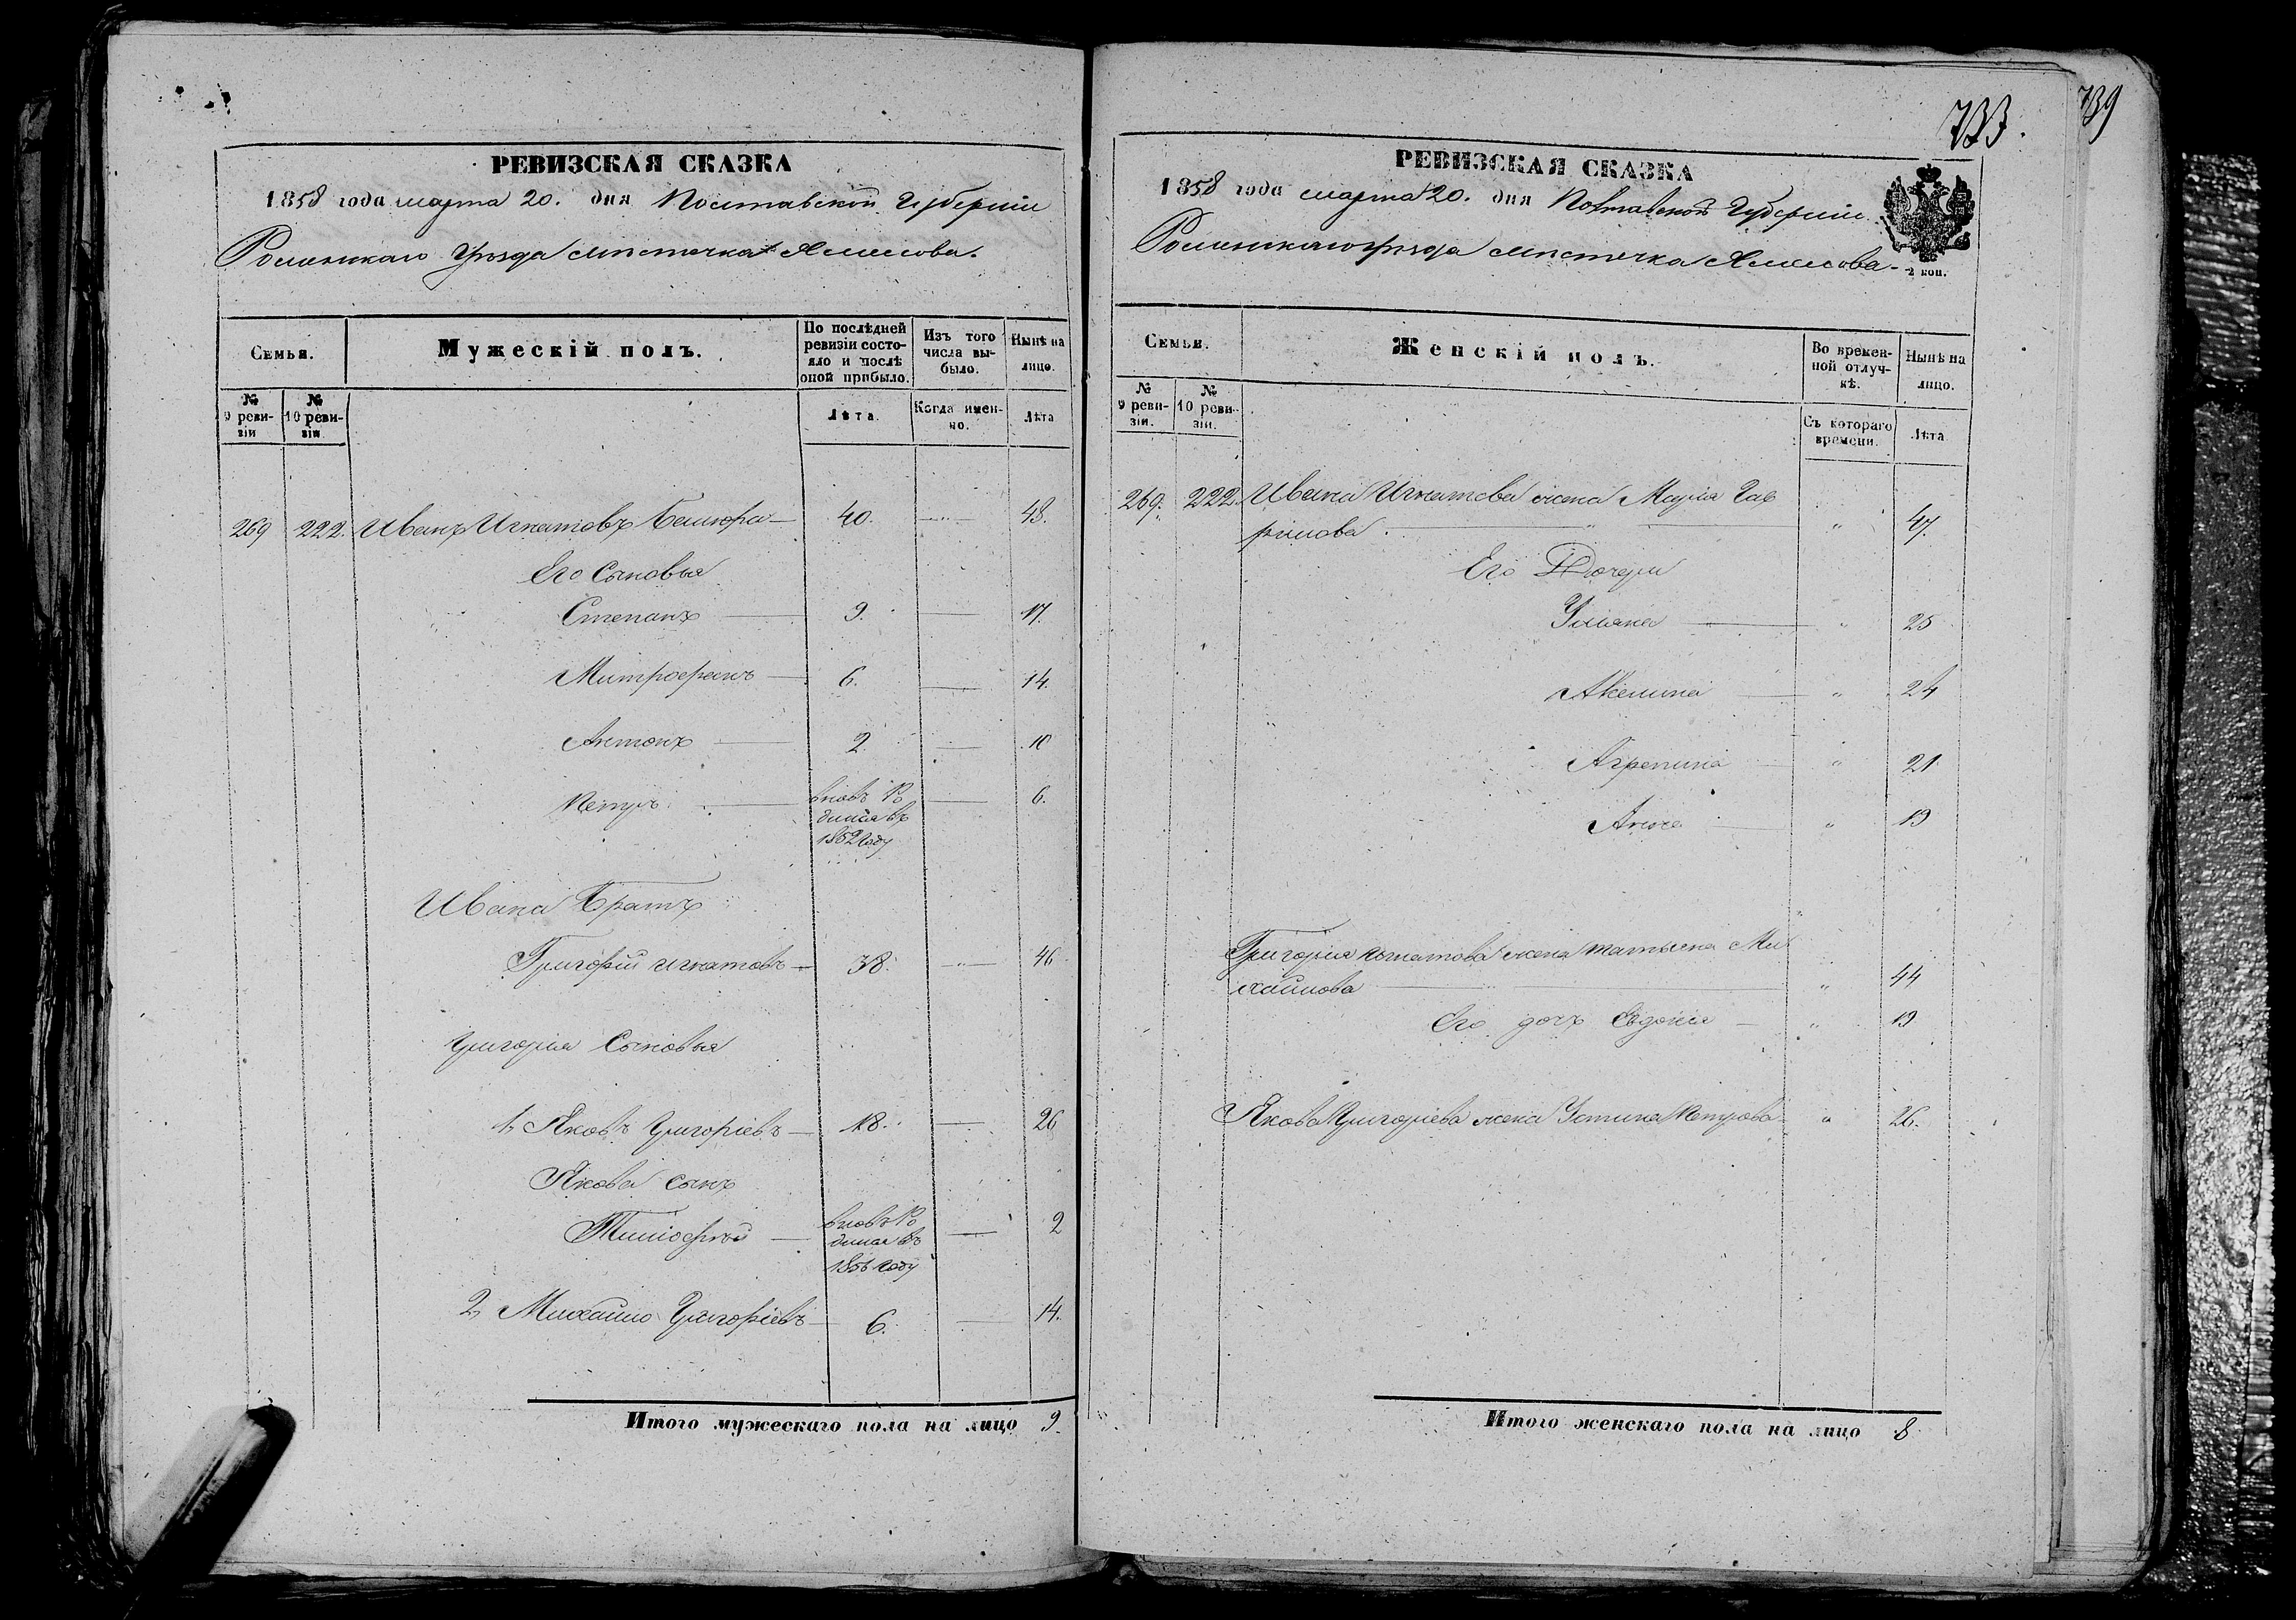 РЕВИЗСКАЯ СКАЗКА
1858 года марта 20. дня Полтавской Губерніи
Роменскаго Уѣзда мѣстечка Смелова.
Семья.
Мужескій полъ.
По послѣдней ревизіи состояло и послѣ оной прибыло.
Изъ того числа выбыло.
Нынѣ на лицо.
№ 9 ревизіи
№ 10 ревизіи
Лѣта.
Когда именно.
Лѣта
269 222. Иванъ Игнатовъ 40. 48.
Его Сыновья
Степанъ 9. 17.
Митрофанъ 6. 14.
Антонъ 2 10
Петръ вновь Ро 6.
дился въ
1852 Году
Ивана Братъ
Григорій Игнатовъ 38. 46
Григорія Сыновья
1, Яковъ Григоріевъ 18. 26
Якова сынъ
Тимофей вновь Ро 2
дился въ
1856 Году
2, Михайло Григоріевъ 6. 14.
Итого мужескаго пола на лицо 9.
733.
739
РЕВИЗСКАЯ СКАЗКА
1858 года марта 20. дня Полтавской Губерніи
Роменскаго уѣзда мѣстечка Смелова.
2 коп.
Семья.
Женскій полъ.
Во временной отлучкѣ.
Нынѣ на лицо.
№ 9 ревизіи.
№ 10 ревизіи.
Съ котораго времени.
Лѣта
269. 222. Ивана Игнатова жена Марія Гав
рилова 47.
Его Дочери
Ульяна 25
Акелина 24
Агрепина 21
Анна 19
Григорія Игнатова жена Татьяна Ми
хайлова 44
Его дочь Евдокія 19
Якова Григоріева жена Устина Петрова 26.
Итого женскаго пола на лицо 8